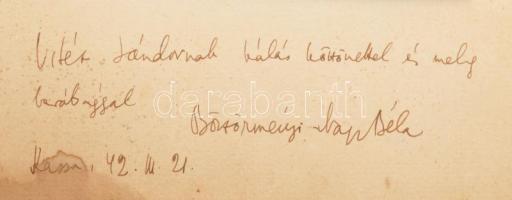 Vitéz Sándornak hálás köszönettel és meleg
barátsággal
Böszörményi-Nagy Béla
Kassa, 42. III. 21.
darabanth